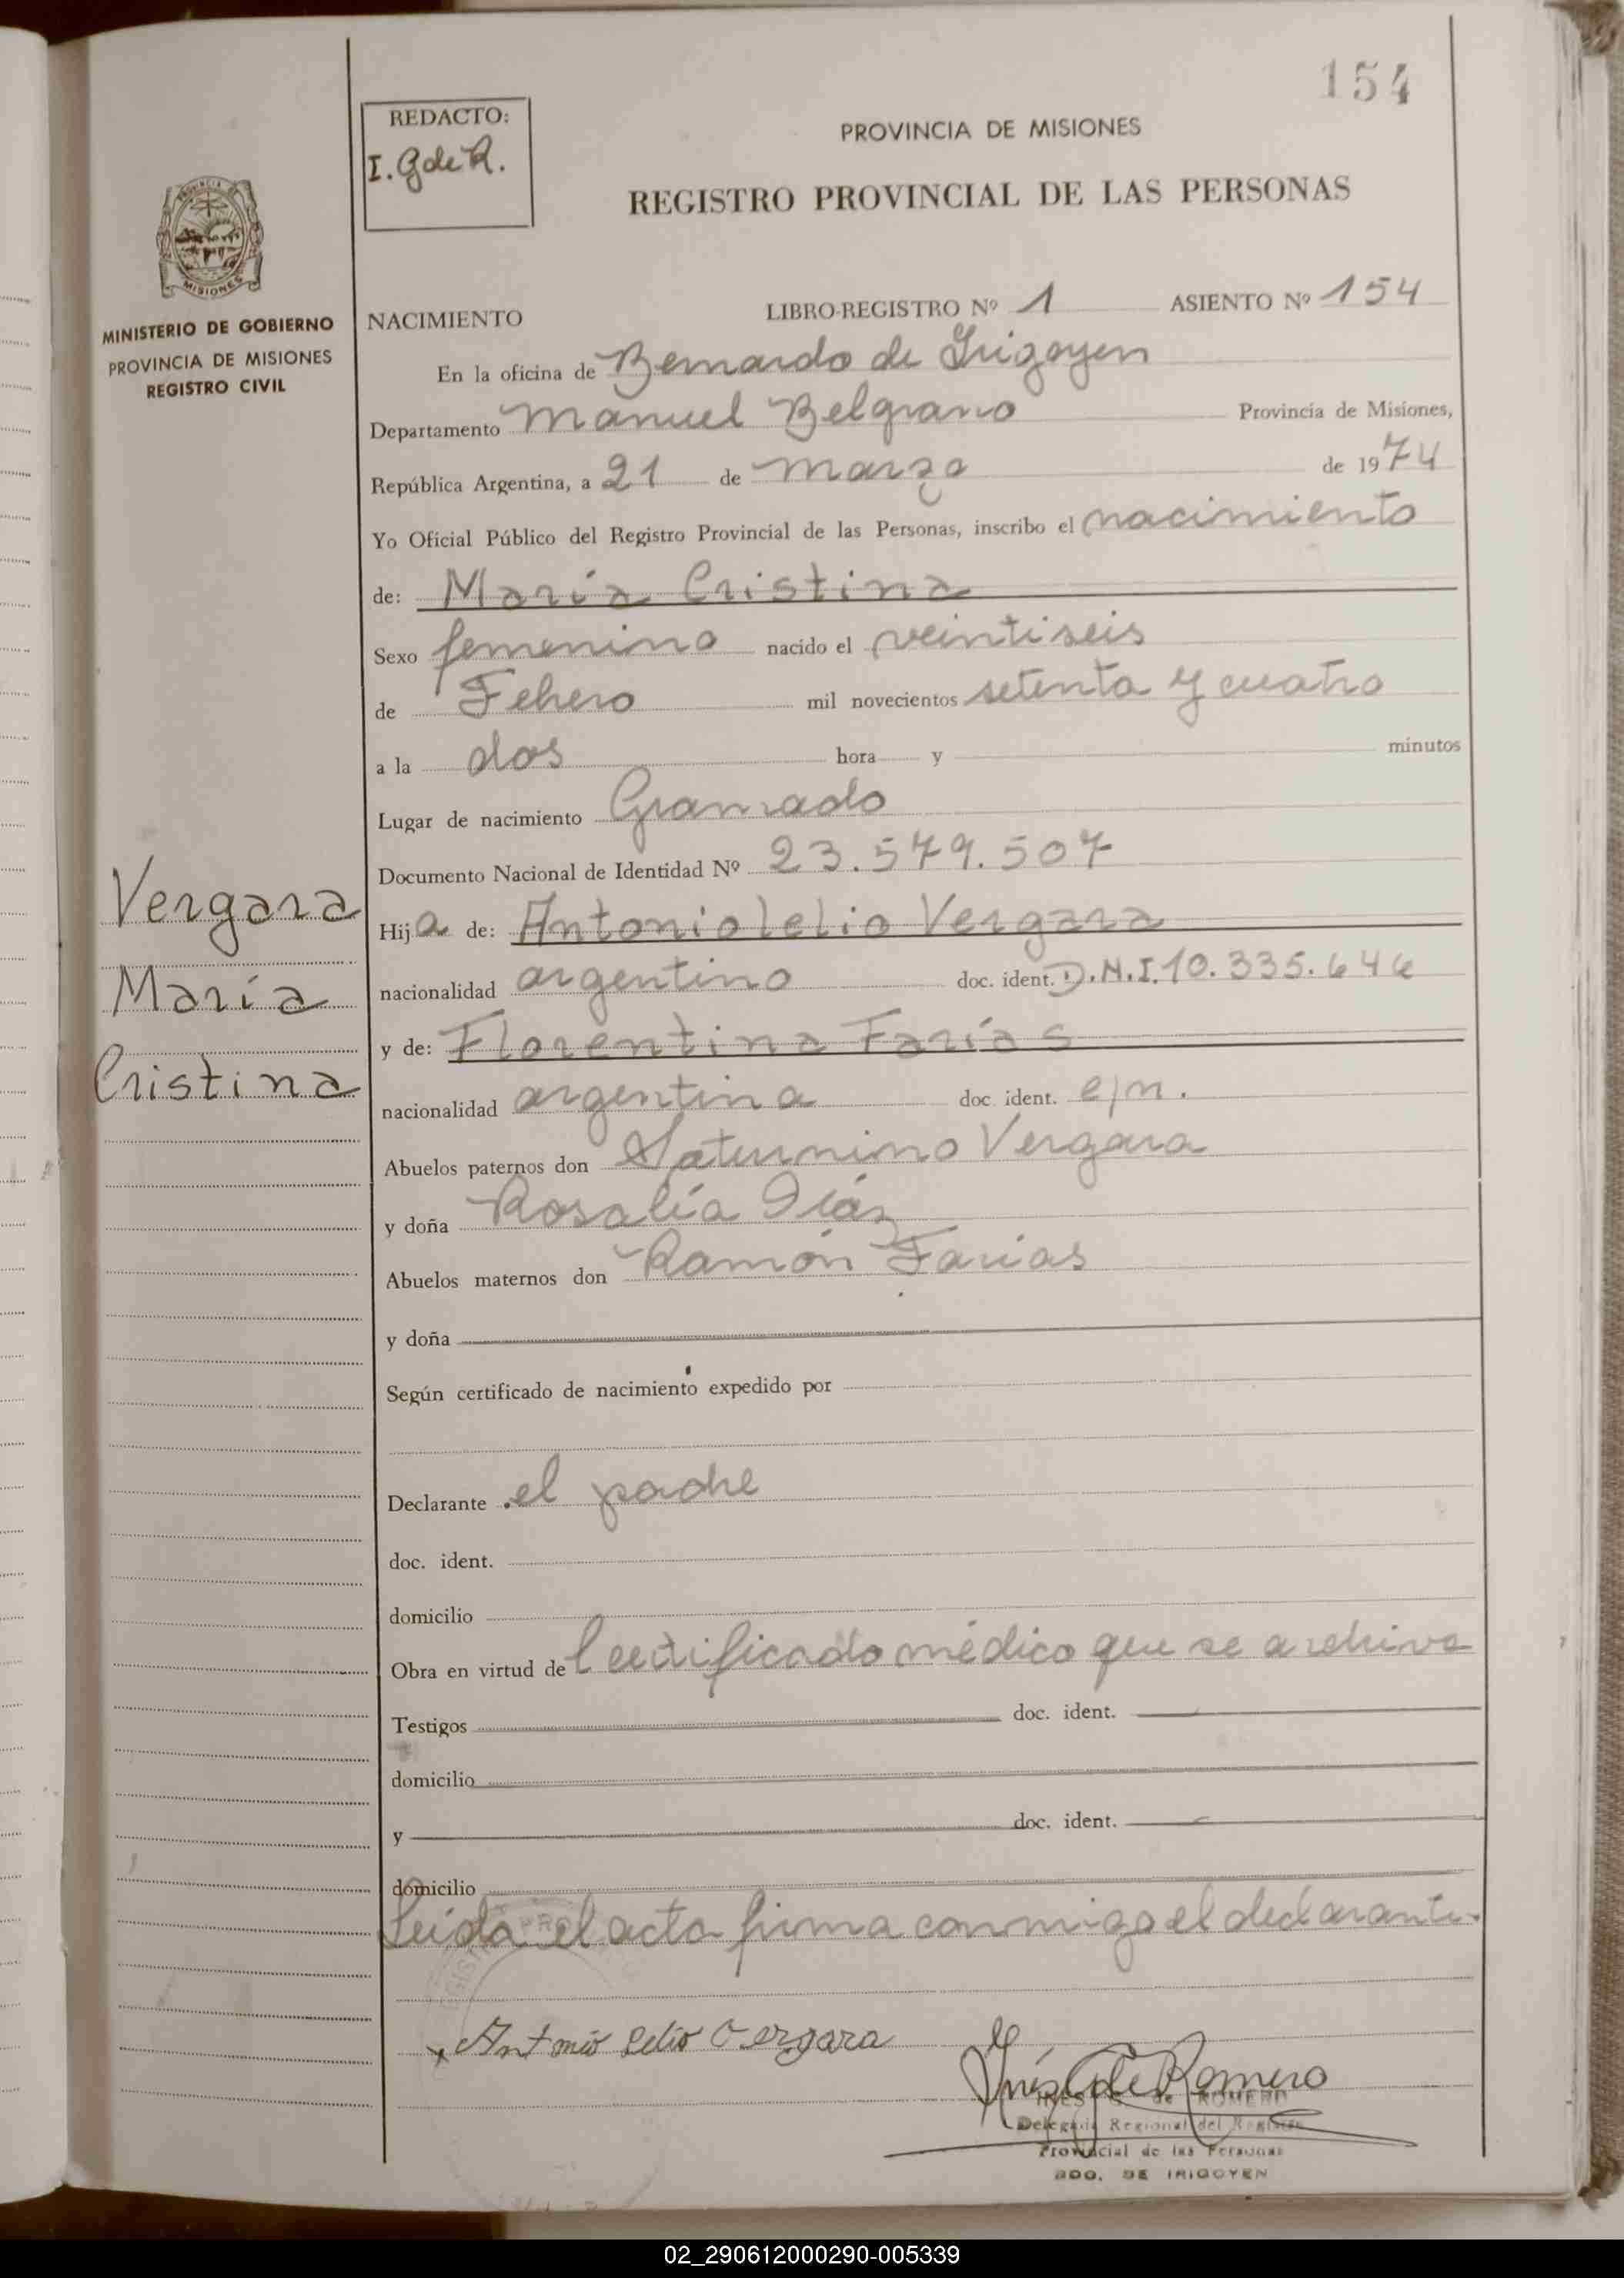 154
REDACTO:
I. G de R.
PROVINCIA DE MISIONES
REGISTRO PROVINCIAL DE LAS PERSONAS
MISIONES
MINISTERIO DE GOBIERNO
PROVINCIA DE MISIONES
REGISTRO CIVIL
NACIMIENTO LIBRO-REGISTRO Nº 1 ASIENTO Nº 154
En la oficina de Bernardo de Irigoyen
Departamento Manuel Belgrano Provincia de Misiones,
República Argentina, a 21 de março de 1974
Yo Oficial Público del Registro Provincial de las Personas, inscribo el nacimiento
de: María Cristina
Sexo femenino nacido el veintiseis
de Febrero mil novecientos setenta y cuatro
a la dos hora y minutos
Lugar de nacimiento Gramado
Documento Nacional de Identidad Nº 23.579.507
Vergara
María
Cristina
Hija de: Antonio Lelio Vergara
nacionalidad argentino doc. ident. D.N.I. 10.335.646
y de: Florentina Farías
nacionalidad argentina doc. ident. e/n.
Abuelos paternos don Saturnino Vergara
y doña Rosalía Diáz
Abuelos maternos don Ramón Farias
y doña
Según certificado de nacimiento expedido por
Declarante el padre
doc. ident.
domicilio
Obra en virtud de Certificado médico que se archiva
Testigos doc. ident.
domicilio
y doc. ident.
domicilio
Leída el acta firma conmigo el declarante.
Antonio Lelio Vergara
Inés G de Romero
INES G. de ROMERO
Delegada Regional del Registro
Provincial de las Personas
BDO. DE IRIGOYEN
02_290612000290-005339